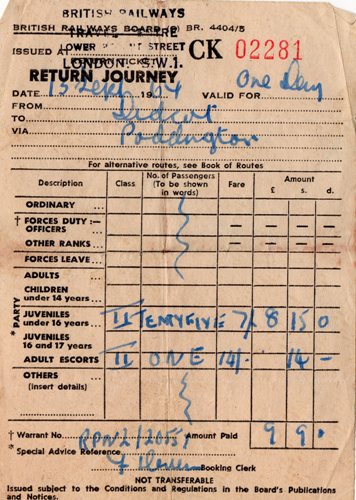 BRITISH RAILWAYS
BRITISH RAILWAYS BOARD BR. 4404/5
TRAVEL CENTRE
ISSUED AT LOWER STREET CK 02281
LONDON, S.W.1.
RETURN JOURNEY One Day
DATE 15 Sept 1964 VALID FOR
FROM Didcot
TO Paddington
VIA
For alternative routes, see Book of Routes
Description Class No. of Passengers (To be shown in words) Fare Amount
£ s. d.
ORDINARY ...
† FORCES DUTY:—
OFFICERS ... — — —
OTHER RANKS ... — — —
FORCES LEAVE ...
ADULTS ...
CHILDREN
under 14 years ...
* PARTY
JUVENILES
under 16 years ... II TENTYFIVE 7/- 8 15 0
JUVENILES
16 and 17 years
ADULT ESCORTS II ONE 14/- 14 —
OTHERS ...
(insert details)
† Warrant No. Amount Paid 9 9 -
* Special Advice Reference
Booking Clerk
NOT TRANSFERABLE
Issued subject to the Conditions and Regulations in the Board's Publications
and Notices.